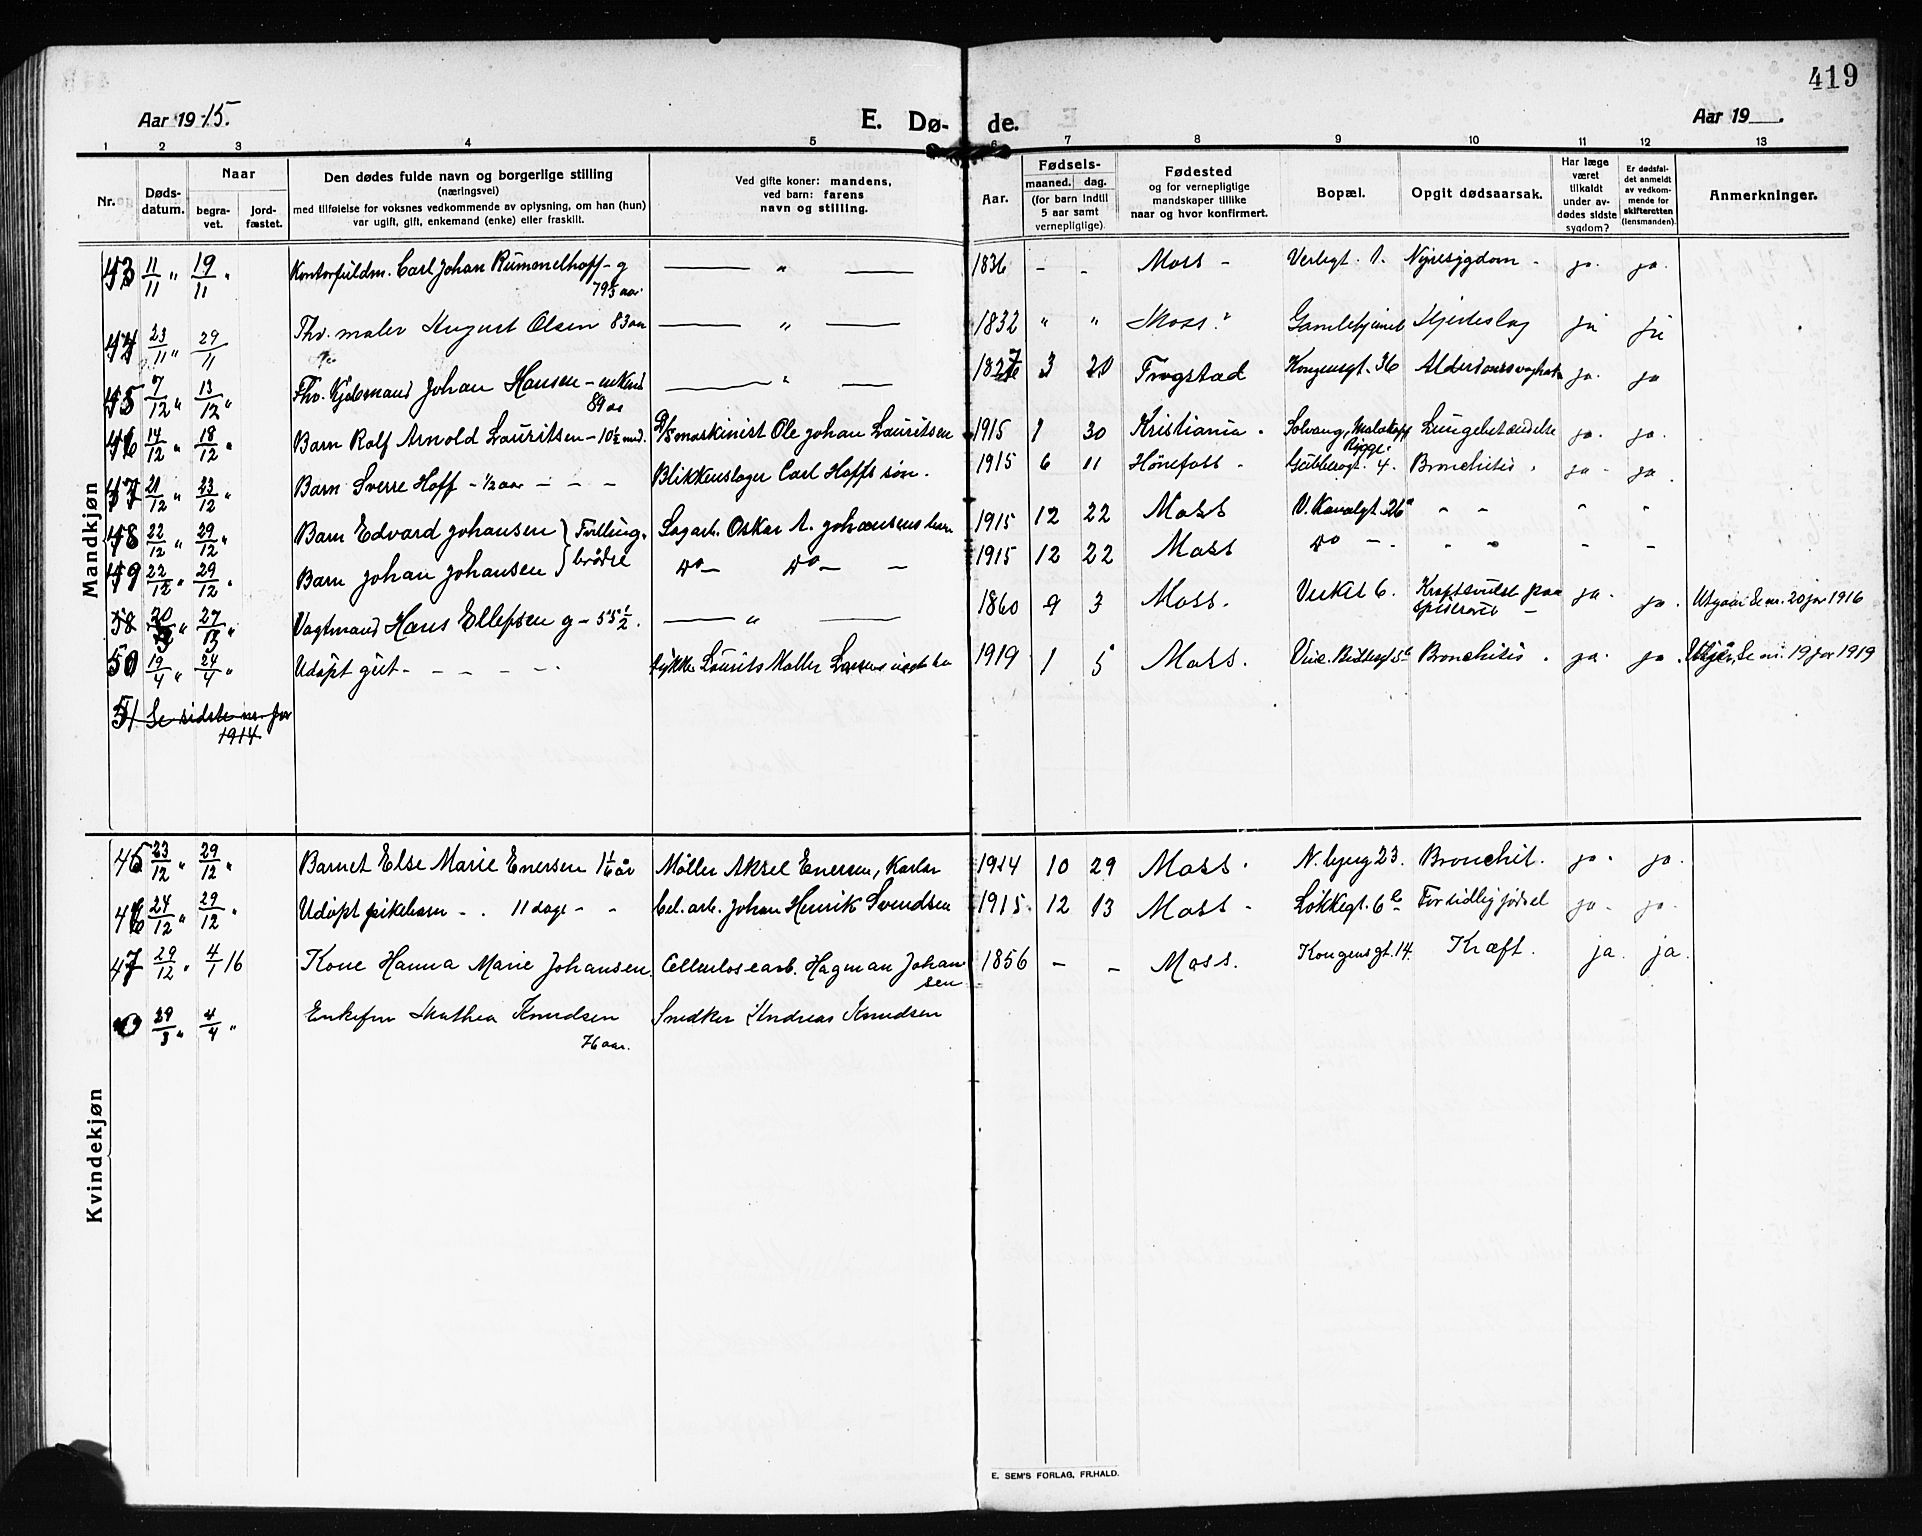 419
Aar 1915.
E. Dø-
de.
Aar 19 .
1 2 3 4 5 6 7 8 9 10 11 12 13
Nr.
Døds-
datum.
Naar
begra-
vet.
Jord-
fæstet.
Den dødes fulde navn og borgerlige stilling
(næringsvei)
med tilføielse for voksnes vedkommende av oplysning, om han (hun)
var ugift, gift, enkemand (enke) eller fraskilt.
Ved gifte koner: mandens,
ved barn: farens
navn og stilling.
Aar.
Fødsels-
maaned. dag.
(for barn indtil
5 aar samt
vernepligtige)
Fødested
og for vernepligtige
mandskaper tillike
naar og hvor konfirmert.
Bopæl.
Opgit dødsaarsak.
Har læge
været
tilkaldt
under av-
dødes sidste
sygdom?
Er dødsfal-
det anmeldt
av vedkom-
mende for
skifteretten
(lensmanden).
Anmerkninger.
Mandkjøn
43 11/11 " 19/11 " Kontorfuldm. Carl Johan Rummelhoff - g — " — 1836 - - Moss - Verlegt. 1. Nyresygdom - ja. ja.
79 5/ aar
44 23/11 " 29/11 Fhv. maler August Olsen 83 aar — " — 1832 " " Moss. " Gamlehjemmet Hjerteslag ja ja
45 7/12 " 13/12 " Fhv. Johan Hansen - enkem — " — 1827 3 20 Trøgstad Kongensgt. 36 Alderdomssvaghet ja. ja
89 aar
46 14/12 " 18/12 " Barn Rolf Arnold Lauritsen - 10½ mnd. D/S maskinist Ole Johan Lauritsen 1915 1 30 Kristiania. Solvang, Malakoff Lungebetændelse ja. ja.
Rygge.
47 21/12 " 23/12 " Barn Sverre Hoff - ½ aar - - - Blikkenslager Carl Hoffs søn. 1915 6 11 Hønefoss - Gubberogt. 4. Bronchitis. ja - ja.
48 22/12 " 29/12 " Barn Edvard Johansen } Tvilling- Sagarb. Oskar A. Johansens barn 1915 12 22 Moss V. Kanalgt. 26 " - - " "
49 22/12 " 29/12 " Barn Johan Johansen } brødre do - do - - 1915 12 22 Moss do - . - " - -
50 27/ " Vagtmand Hans Ellefsen g - 55 ½. — " — 1860 9 3 Moss. Verket 6. Kræftsvulst paa ja. ja. Utgaar Se nr. 20 for 1916
spiserøret -
50 19/4 " 24/4 " Udøpt gut - - - - - Lauritz Møller 1919 1 5 Moss. Bronchitis. ja. ja. Utgår, Se nr. 19 for 1919
51 Se sidste nr. for
1914
Kvindekjøn
45 23/12 " 29/12 " Barnet Else Marie Enersen 1 1/6 år Møller Aksel Enersen, Karlar 1914 10 29 Moss. N. bjerg 23. Bronchit. ja. ja.
46 24/12 " 29/12 " Udøpt pikebarn - . 11 dage - - Cel. arb. Johan Henrik Svendsen 1915. 12 13 Moss - Løkkegt. 6 b For tidlig fødsel ja - ja.
47 29/12 " 4/1 16 Kone Hanna Marie Johansen. Cellulosearb. Hagman Johan 1856 - - Moss. Kongensgt. 14. Kræft. ja. ja.
sen
29/3 " 4/4 " Enkefru Mathea Knudsen Snedker Andreas Knudsen
76 aar.
E. SEM'S FORLAG, FR.HALD.